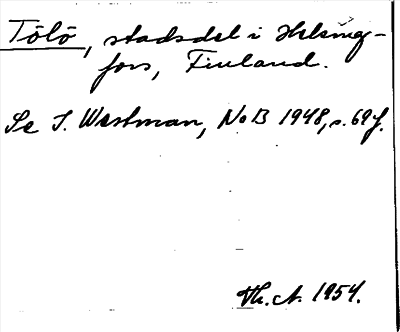 Tölö, stadsdel i Helsing-
fors, Finland.
Se I. Westman, NoB 1948, s. 69 f.
Th. A. 1954.